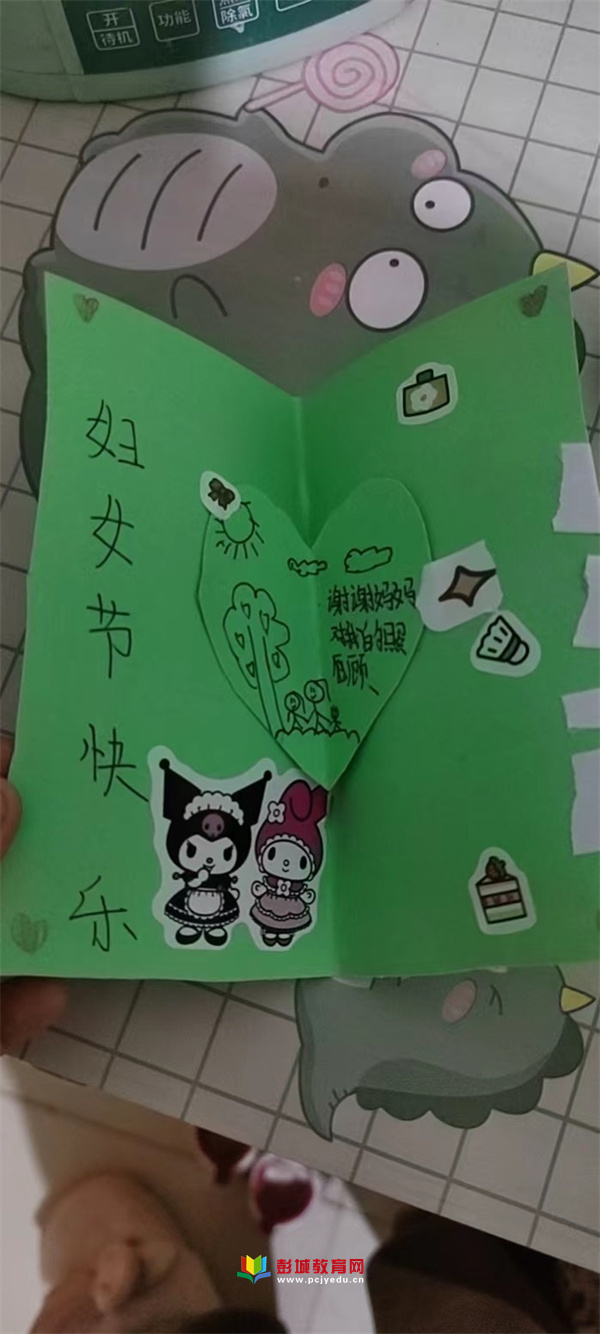 开
待机
功能
除氧
妇
女
节
快
乐
谢谢妈妈
对我们的照
顾、
彭城教育网
www.pcjyedu.cn